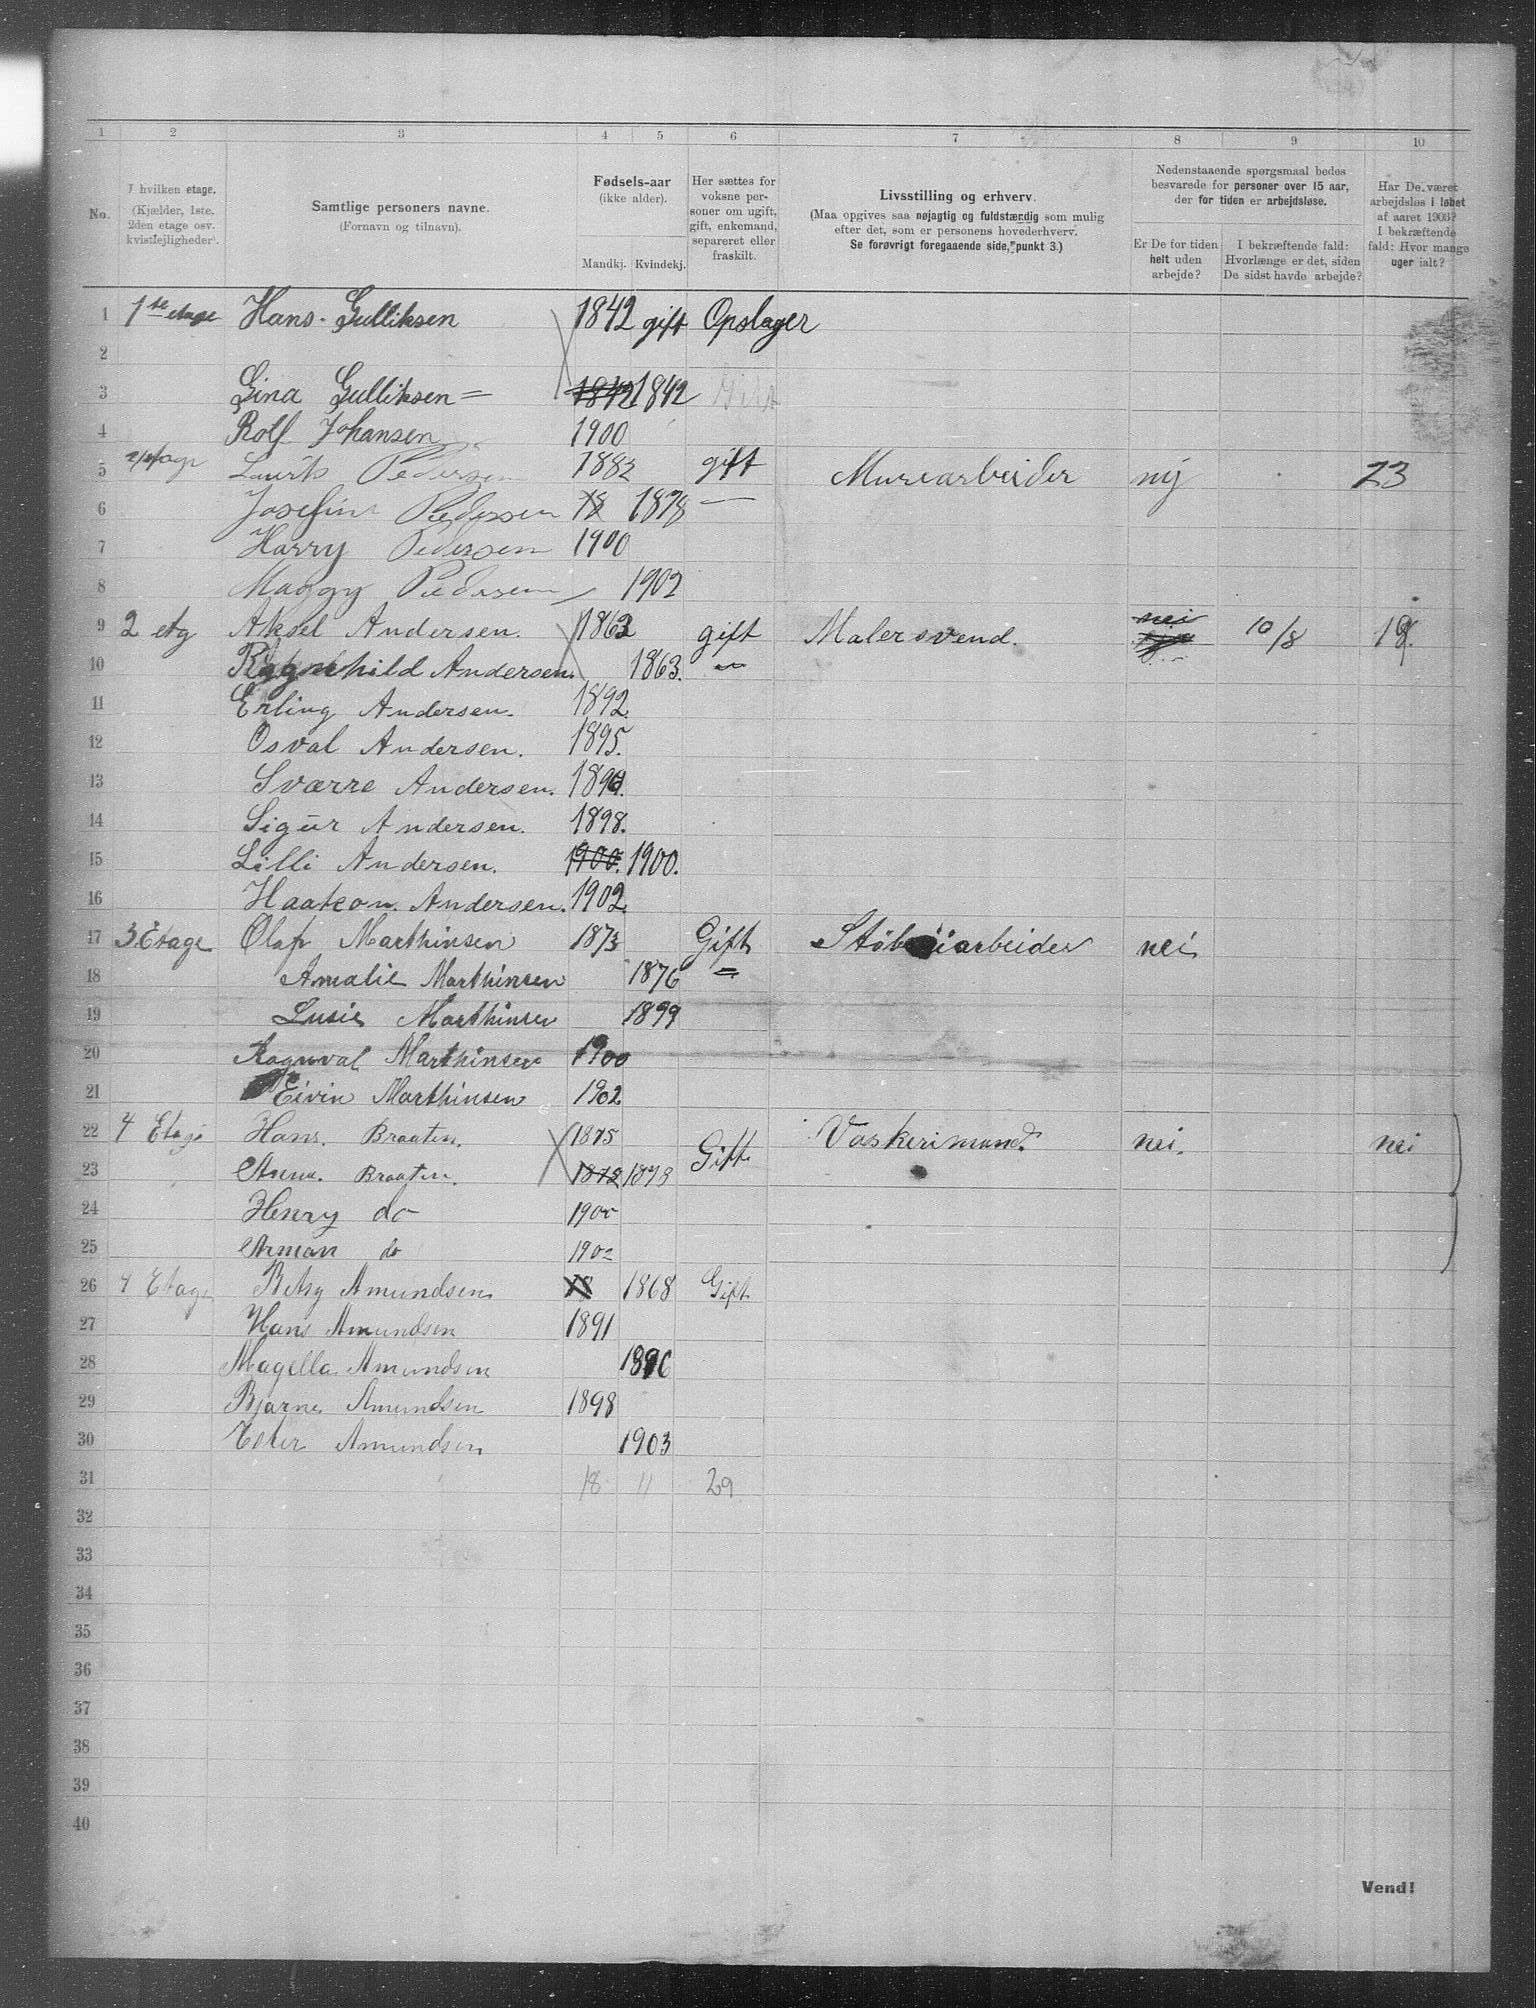 1 2 3 4 5 6 7 8 9 10
No.
I hvilken etage.
(Kjælder, 1ste, 2den etage osv. kvistlejligheder).
Samtlige personers navne.
(Fornavn og tilnavn).
Fødsels-aar
(ikke alder).
Mandkj. Kvindekj.
Her sættes for voksne personer om ugift, gift, enkemand, separeret eller fraskilt.
Livsstilling og erhverv.
(Maa opgives saa nøjagtig og fuldstændig som mulig efter det, som er personens hovederhverv.
Se forøvrigt foregaaende side, punkt 3.)
Nedenstaaende spørgsmaal bedes besvarede for personer over 15 aar, der for tiden er arbejdsløse.
Er De for tiden helt uden arbejde?
I bekræftende fald: Hvorlænge er det, siden De sidst havde arbejde?
Har De været arbejdsløs i løbet af aaret 1903? I bekræftende fald: Hvor mange uger ialt?
1 1ste etage Hans Gulliksen 1842 gift Opslager
2
3 Gina Gulliksen = 1842 1842 Gift
4 Rolf Johansen 1900
5 Laurits Pedersen 1882 gift Murearbeider nij 23
6 Josefine Pedersen 18 1878 —
7 Harry Pedersen 1900
8 Maggy Pedersen 1902
9 2 etg Aksel Andersen. 1863 gift Malersvend. nei 10/8 18.
10 Ragnhild Andersen. 1863. "
11 Erling Andersen. 1892.
12 Osval Andersen. 1895.
13 Sværre Andersen. 1896.
14 Sigur Andersen. 1898.
15 Lilli Andersen. 1900. 1900.
16 Haakon. Andersen. 1902.
17 3 Etage Olaf Marthinsen 1873 Gift Støberiarbeider nei
18 Amalie Marthinsen 1876 =
19 Lusie Marthinsen 1899
20 Ragnval Marthinsen 1900
21 Eivin Marthinsen 1902
22 4 Etage Hans. Braaten. 1875 Gift Vaskerimand. nei. nei
23 Anna. Braaten. 1878 1878
24 Henry do 1900
25 Arman do 1902
26 4 Etage Betsy Amundsen 18 1868 Gift
27 Hans Amundsen 1891
28 Magella Amundsen 1896
29 Bjarne Amundsen 1898
30 Ester Amundsen 1903
31 18 11 29
32
33
34
35
36
37
38
39
40
Vend!